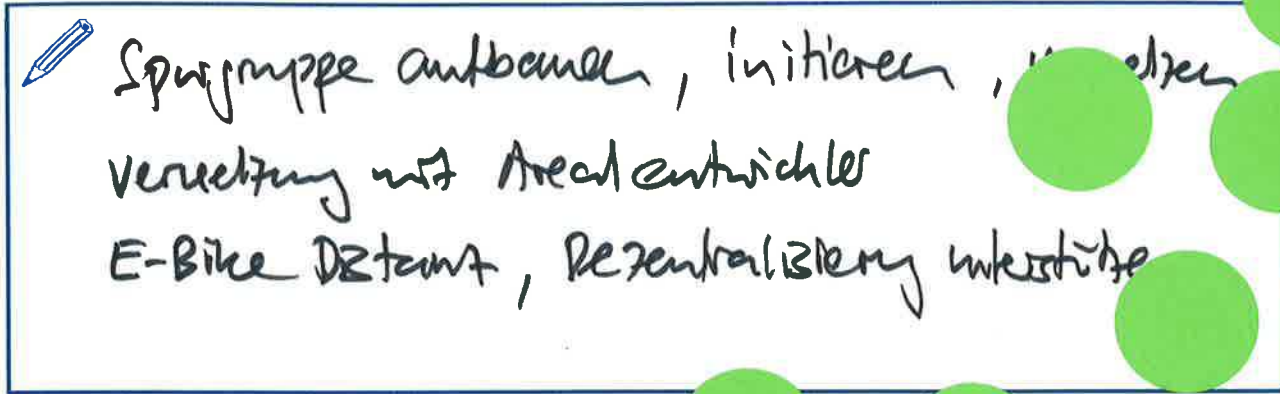 Spurgruppe aufbauen, initiieren,
Vernetzung mit Arealentwickler
E-Bike Distanz, Dezentralisierung unterstütze